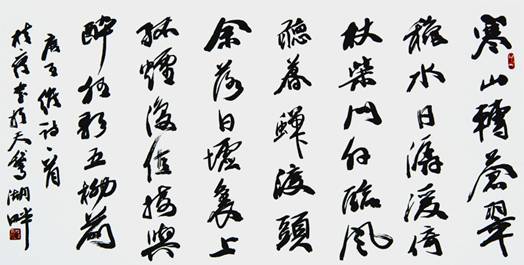 寒山轉蒼翠
秋水日潺湲倚
杖柴門外臨風
聽暮蟬渡頭
余落日墟裏上
孤煙復值接輿
醉狂歌五柳前
唐王維詩一首
於天鵝湖畔